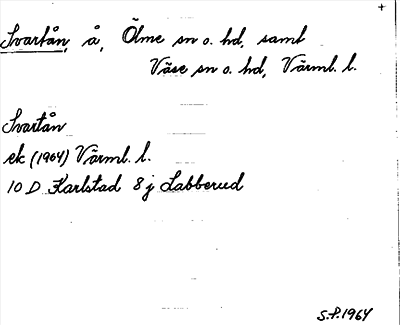 +
Svartån, å, Ölme sn o. hd, samt
Väse sn o. hd, Värml. l.
Svartån
ek (1964) Värml. l.
10 D Karlstad 8 j Labberud
S.P. 1964